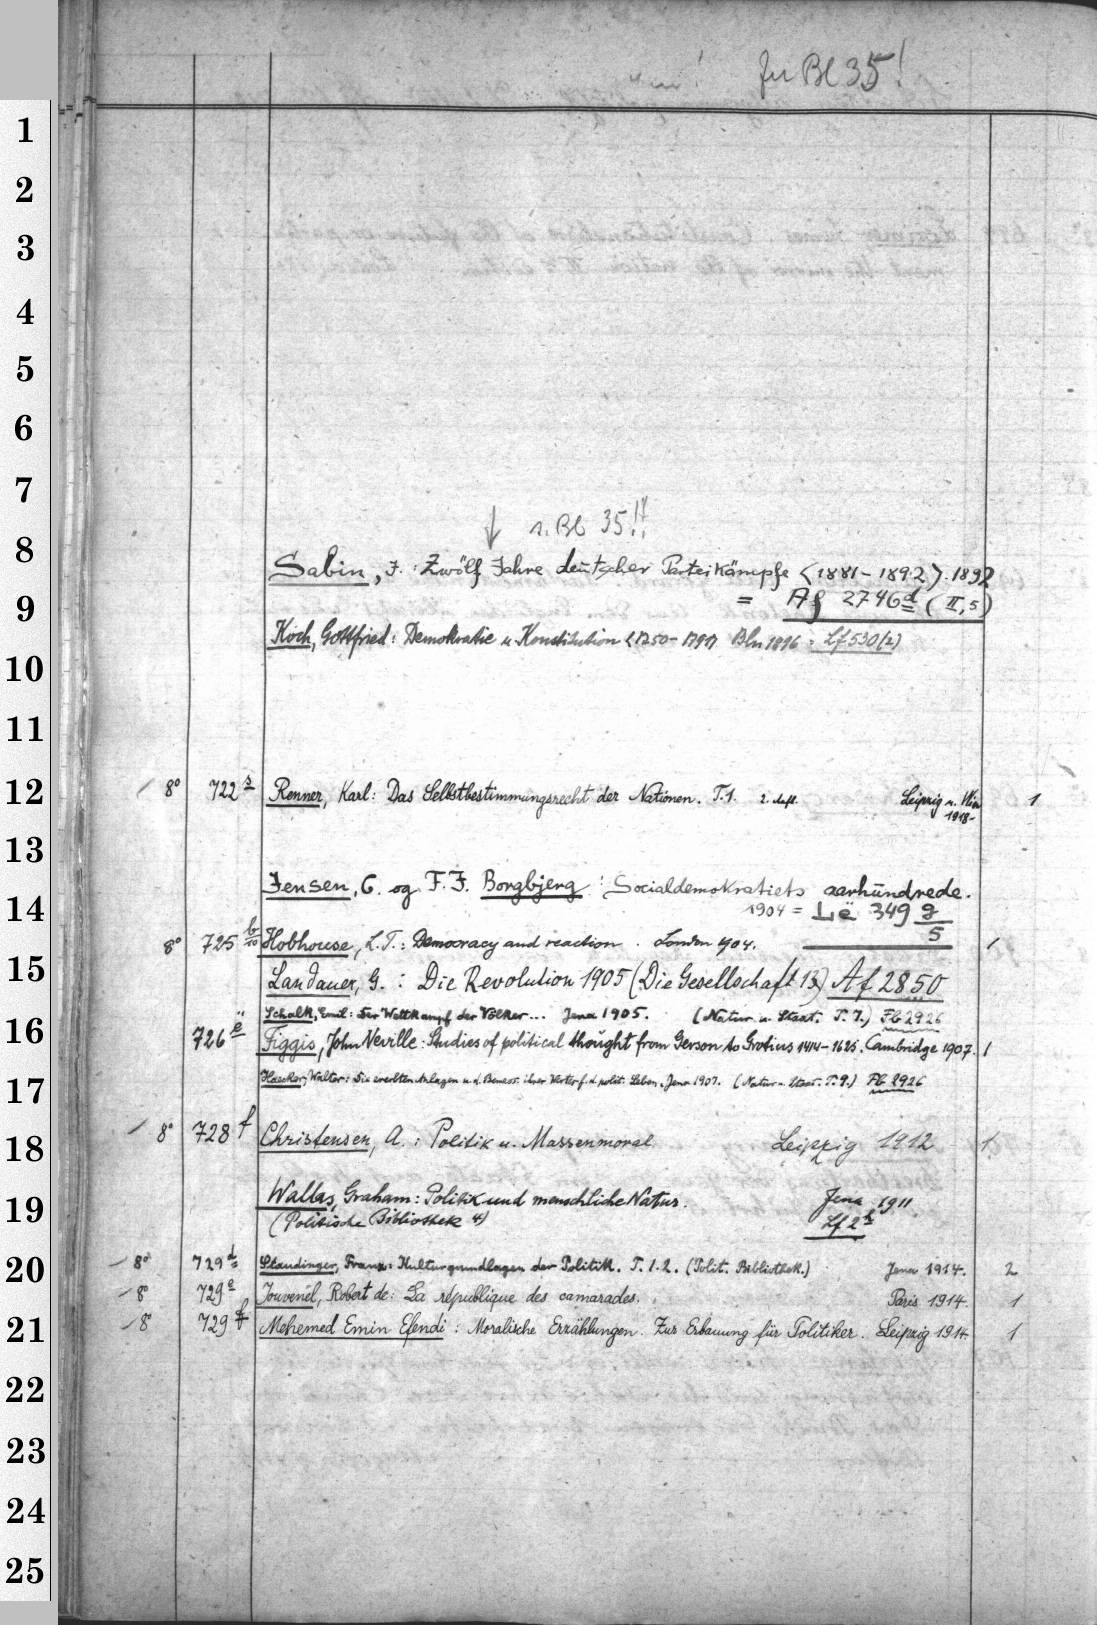 zu Bl 35!
1
2
3
4
5
6
7
s. Bl 35!!
8 Sabin, F.: Zwölf Jahre deutscher Parteikämpfe <1881-1892>. 1892
9 = Af 2746 d (II,5)
Koch, Gottfried: Demokratie u. Konstitution <1750-1791> Bln 1896 = Lf 530 (2)
10
11
12 8° 722 s Renner, Karl: Das Selbstbestimmungsrecht der Nationen. T. 1. 2. Aufl. Leipzig u. Wien 1
1918-
13
Jensen, C. og F. J. Borgbjerg: Socialdemokratiets aarhundrede.
14 1904 = Lë 349 g/5
8° 725 b/10 Hobhouse, L.T.: Democracy and reaction. London 1904. 1
15 Landauer, G.: Die Revolution 1905 (Die Gesellschaft 13) Af 2850
Schalk, Emil: Der Wettkampf der Völker... Jena 1905. (Natur u. Staat. T. 7.) Fb 2926
16 726 ë Figgis, John Neville: Studies of political thought from Gerson to Grotius 1414-1625. Cambridge 1907. 1
17 Haecker, Walter: Die ererbten Anlagen u. d. Bemess. ihrer Wertes f. d. polit. Leben. Jena 1907. (Natur u. Staat. T. 9.) Fb 2926
18 8° 728 f Christensen, A.: Politik u. Massenmoral Leipzig 1912 1
19 Wallas, Graham: Politik und menschliche Natur. Jena 1911.
(Politische Bibliothek 4) Lf 2
20 8° 729 d Staudinger, Franz: Kulturgrundlagen der Politik. T. 1. 2. (Polit. Bibliothek.) Jena 1914. 2
8° 729 e Jouvenel, Robert de: La république des camarades. Paris 1914. 1
21 8° 729 f Mehemed Emin Efendi: Moralische Erzählungen. Zur Erbauung für Politiker. Leipzig 1914 1
22
23
24
25